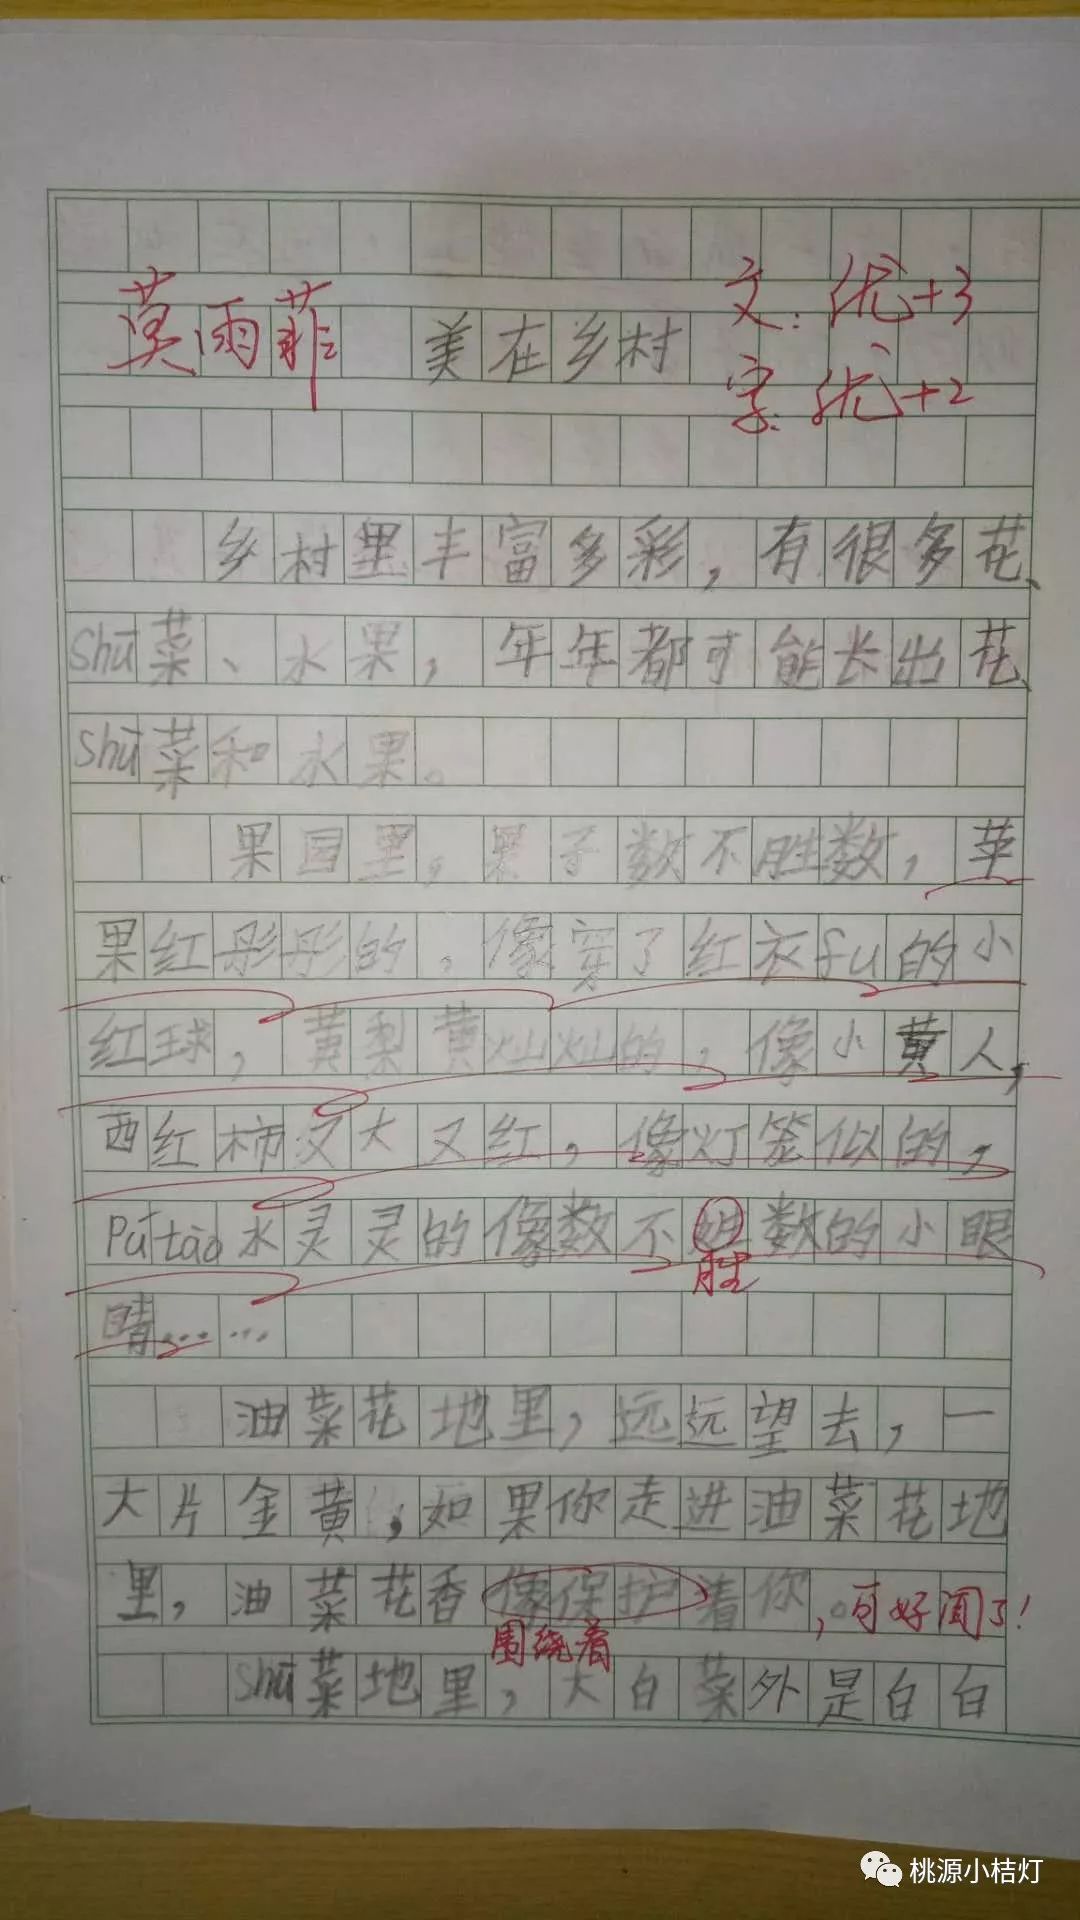 莫雨菲 美在乡村 文:优+3
字:优+2
乡村里丰富多彩,有很多花、
shū菜、水果,年年都可能长出花、
shū菜和水果。
果园里,果子数不胜数,苹
果红彤彤的,像穿了红衣fu的小
红球,黄梨黄灿灿的,像小黄人,
西红柿又大又红,像灯笼似的,
Pú táo水灵灵的像数不胜数的小眼
胜
睛……
油菜花地里,远远望去,一
大片金黄,如果你走进油菜花地
里,油菜花香像保护着你,可好闻了!
围绕着
shū菜地里,大白菜外是白白
桃源小桔灯